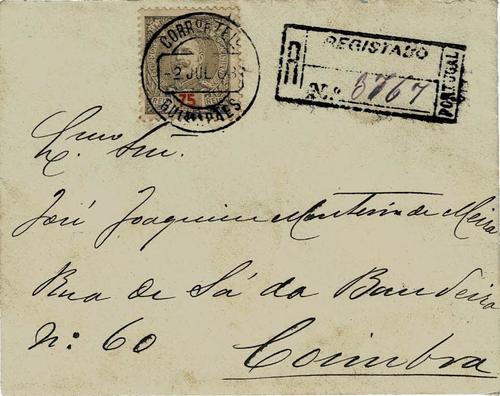 CORRº E TEL.
-2 JUL
GUIMARÃES
75
REGISTADO
N.º 6767
PORTUGAL
R
Exmo Snr.
José Joaquim Monteiro de Meira
Rua de Sá da Bandeira
Nº 60 Coimbra